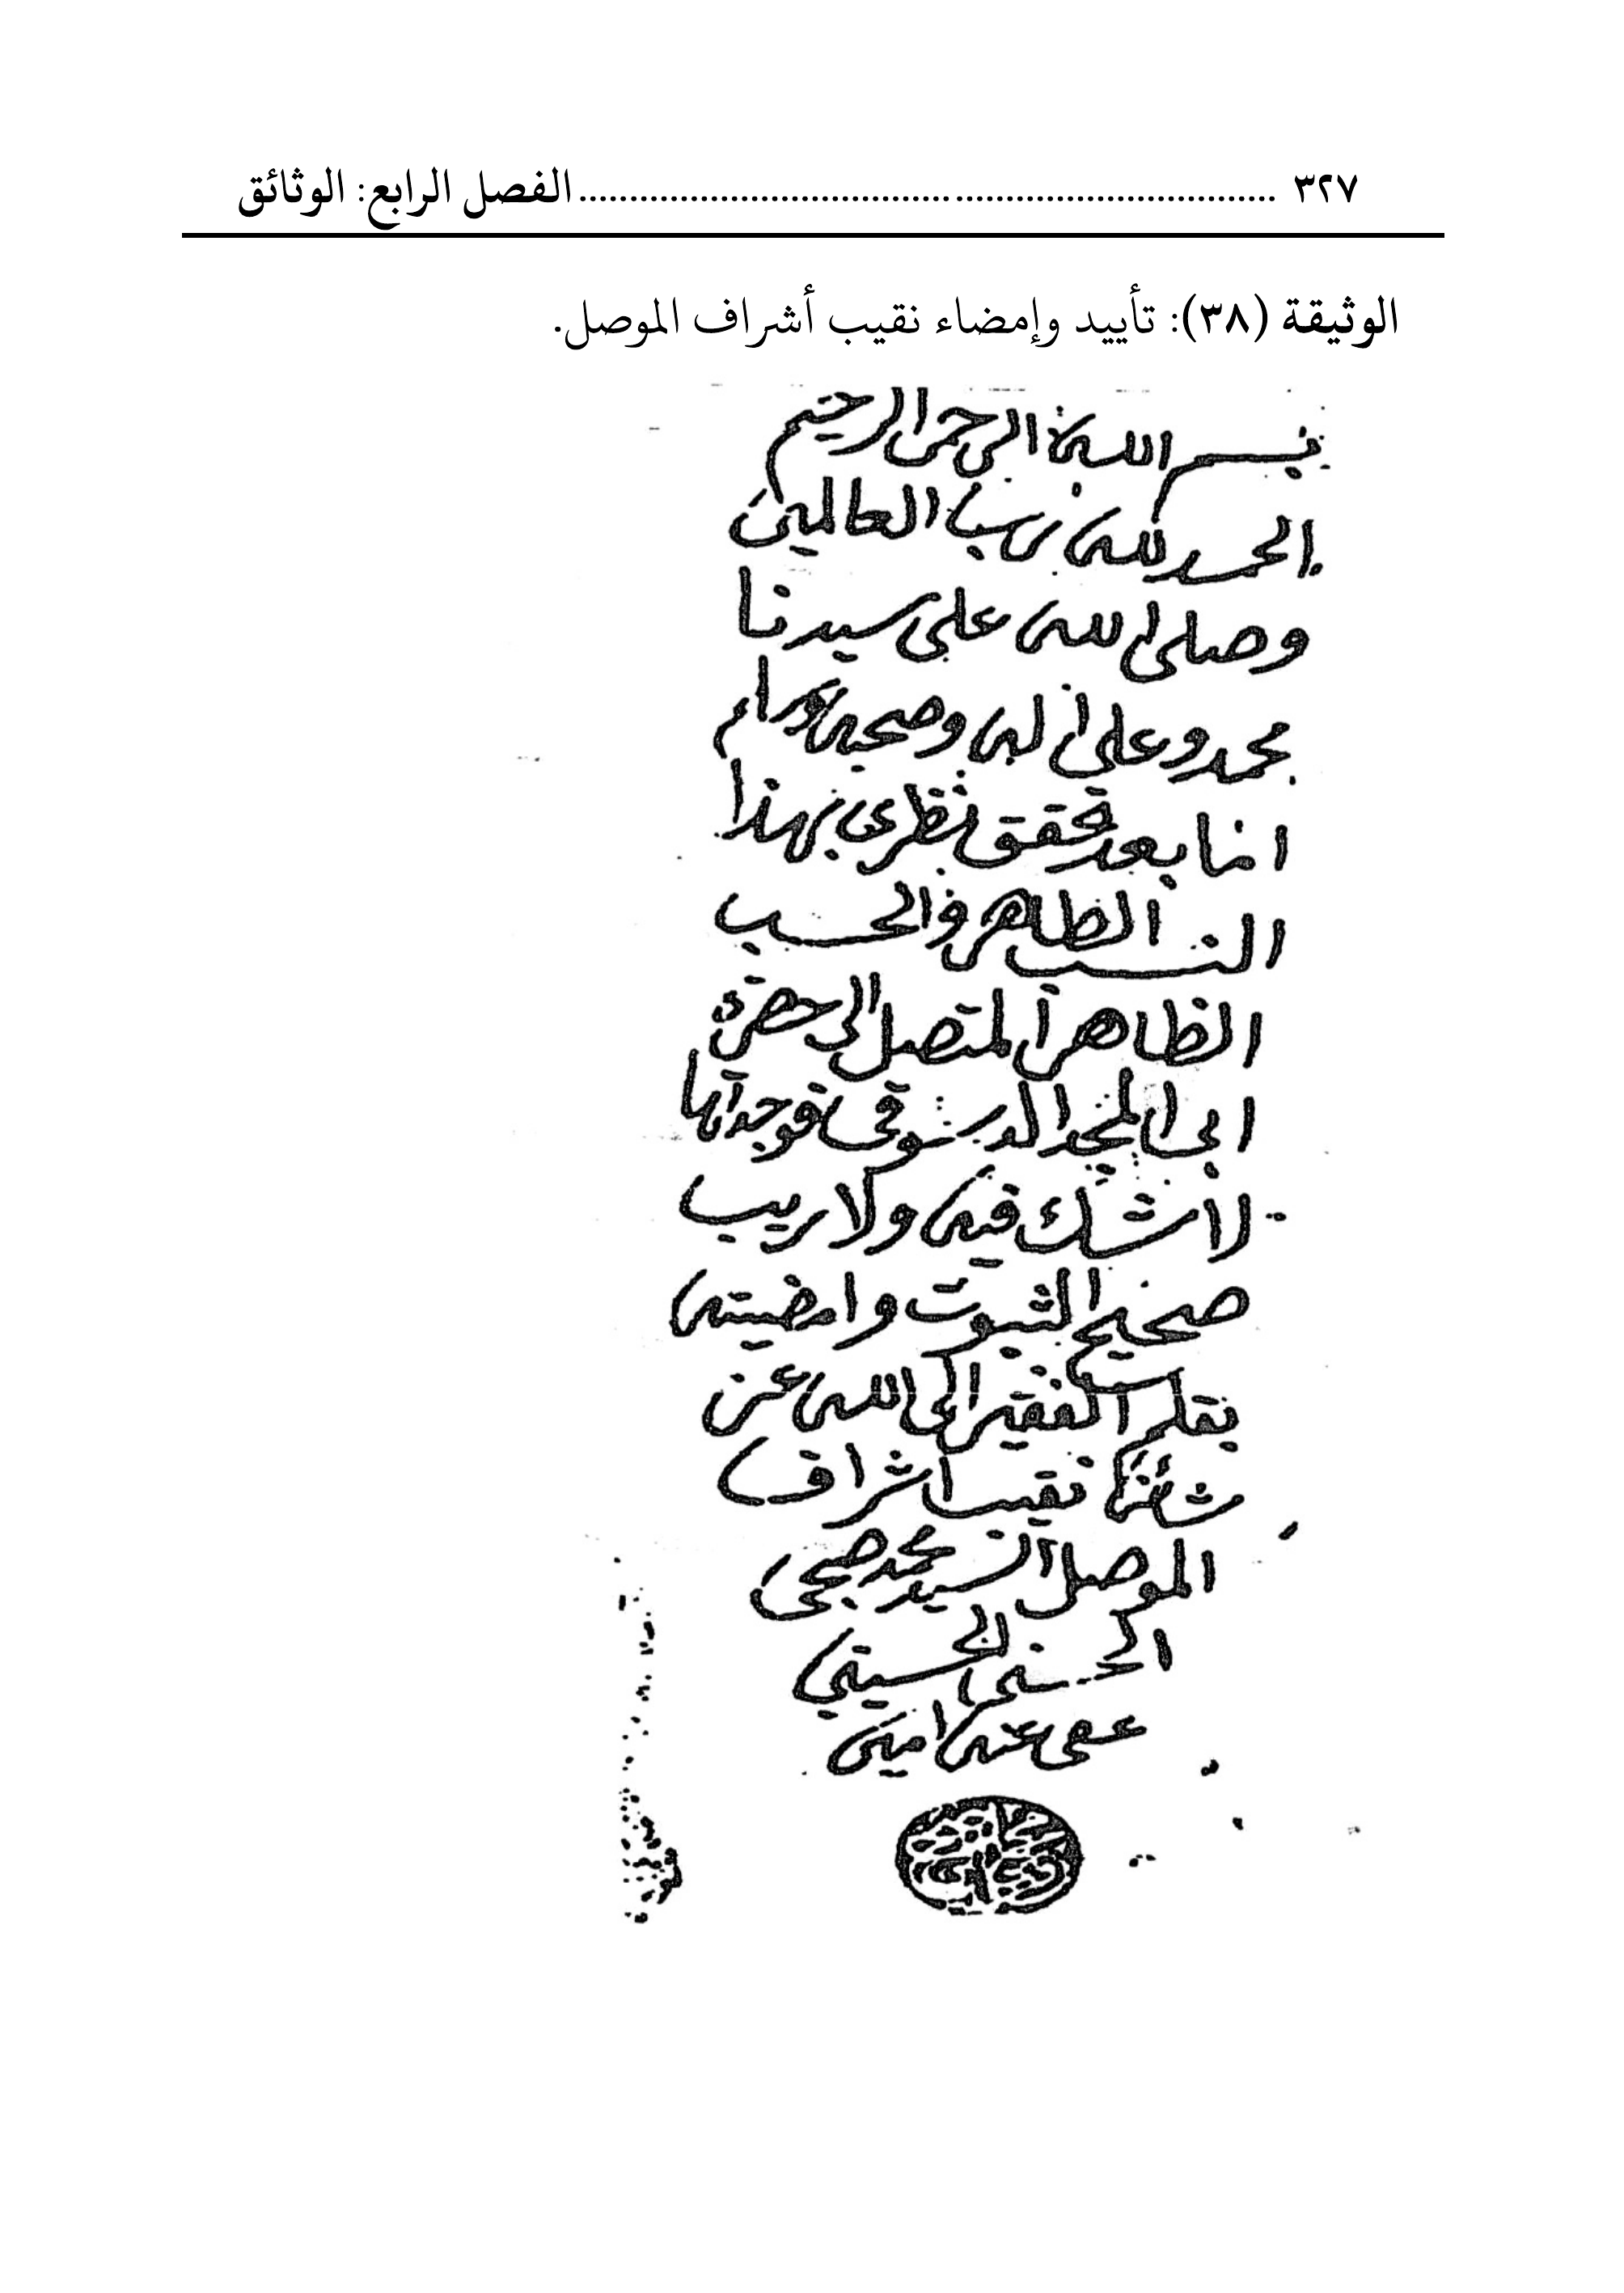 ٣٢٧ ........................................................................ الفصل الرابع: الوثائق
الوثيقة (٣٨): تأييد وإمضاء نقيب أشراف الموصل.
بسم الله الرحمن الرحيم
الحمد لله رب العالمين
وصلى الله على سيدنا
محمد وعلى اله وصحبه
اما بعد تحقق نظري بهذا
النسب الظاهر والحسب
الظاهر المتصل الى حضرة
ابى المجد الدسوقى فوجدتها
لا شك فيه ولا ريب
صحيح الثبوت وامضيته
بقلم الفقير الى الله عن
نقيب اشراف
الموصل السيد محمد صبحى
الحسنى الحسيني
عفى عنه امين